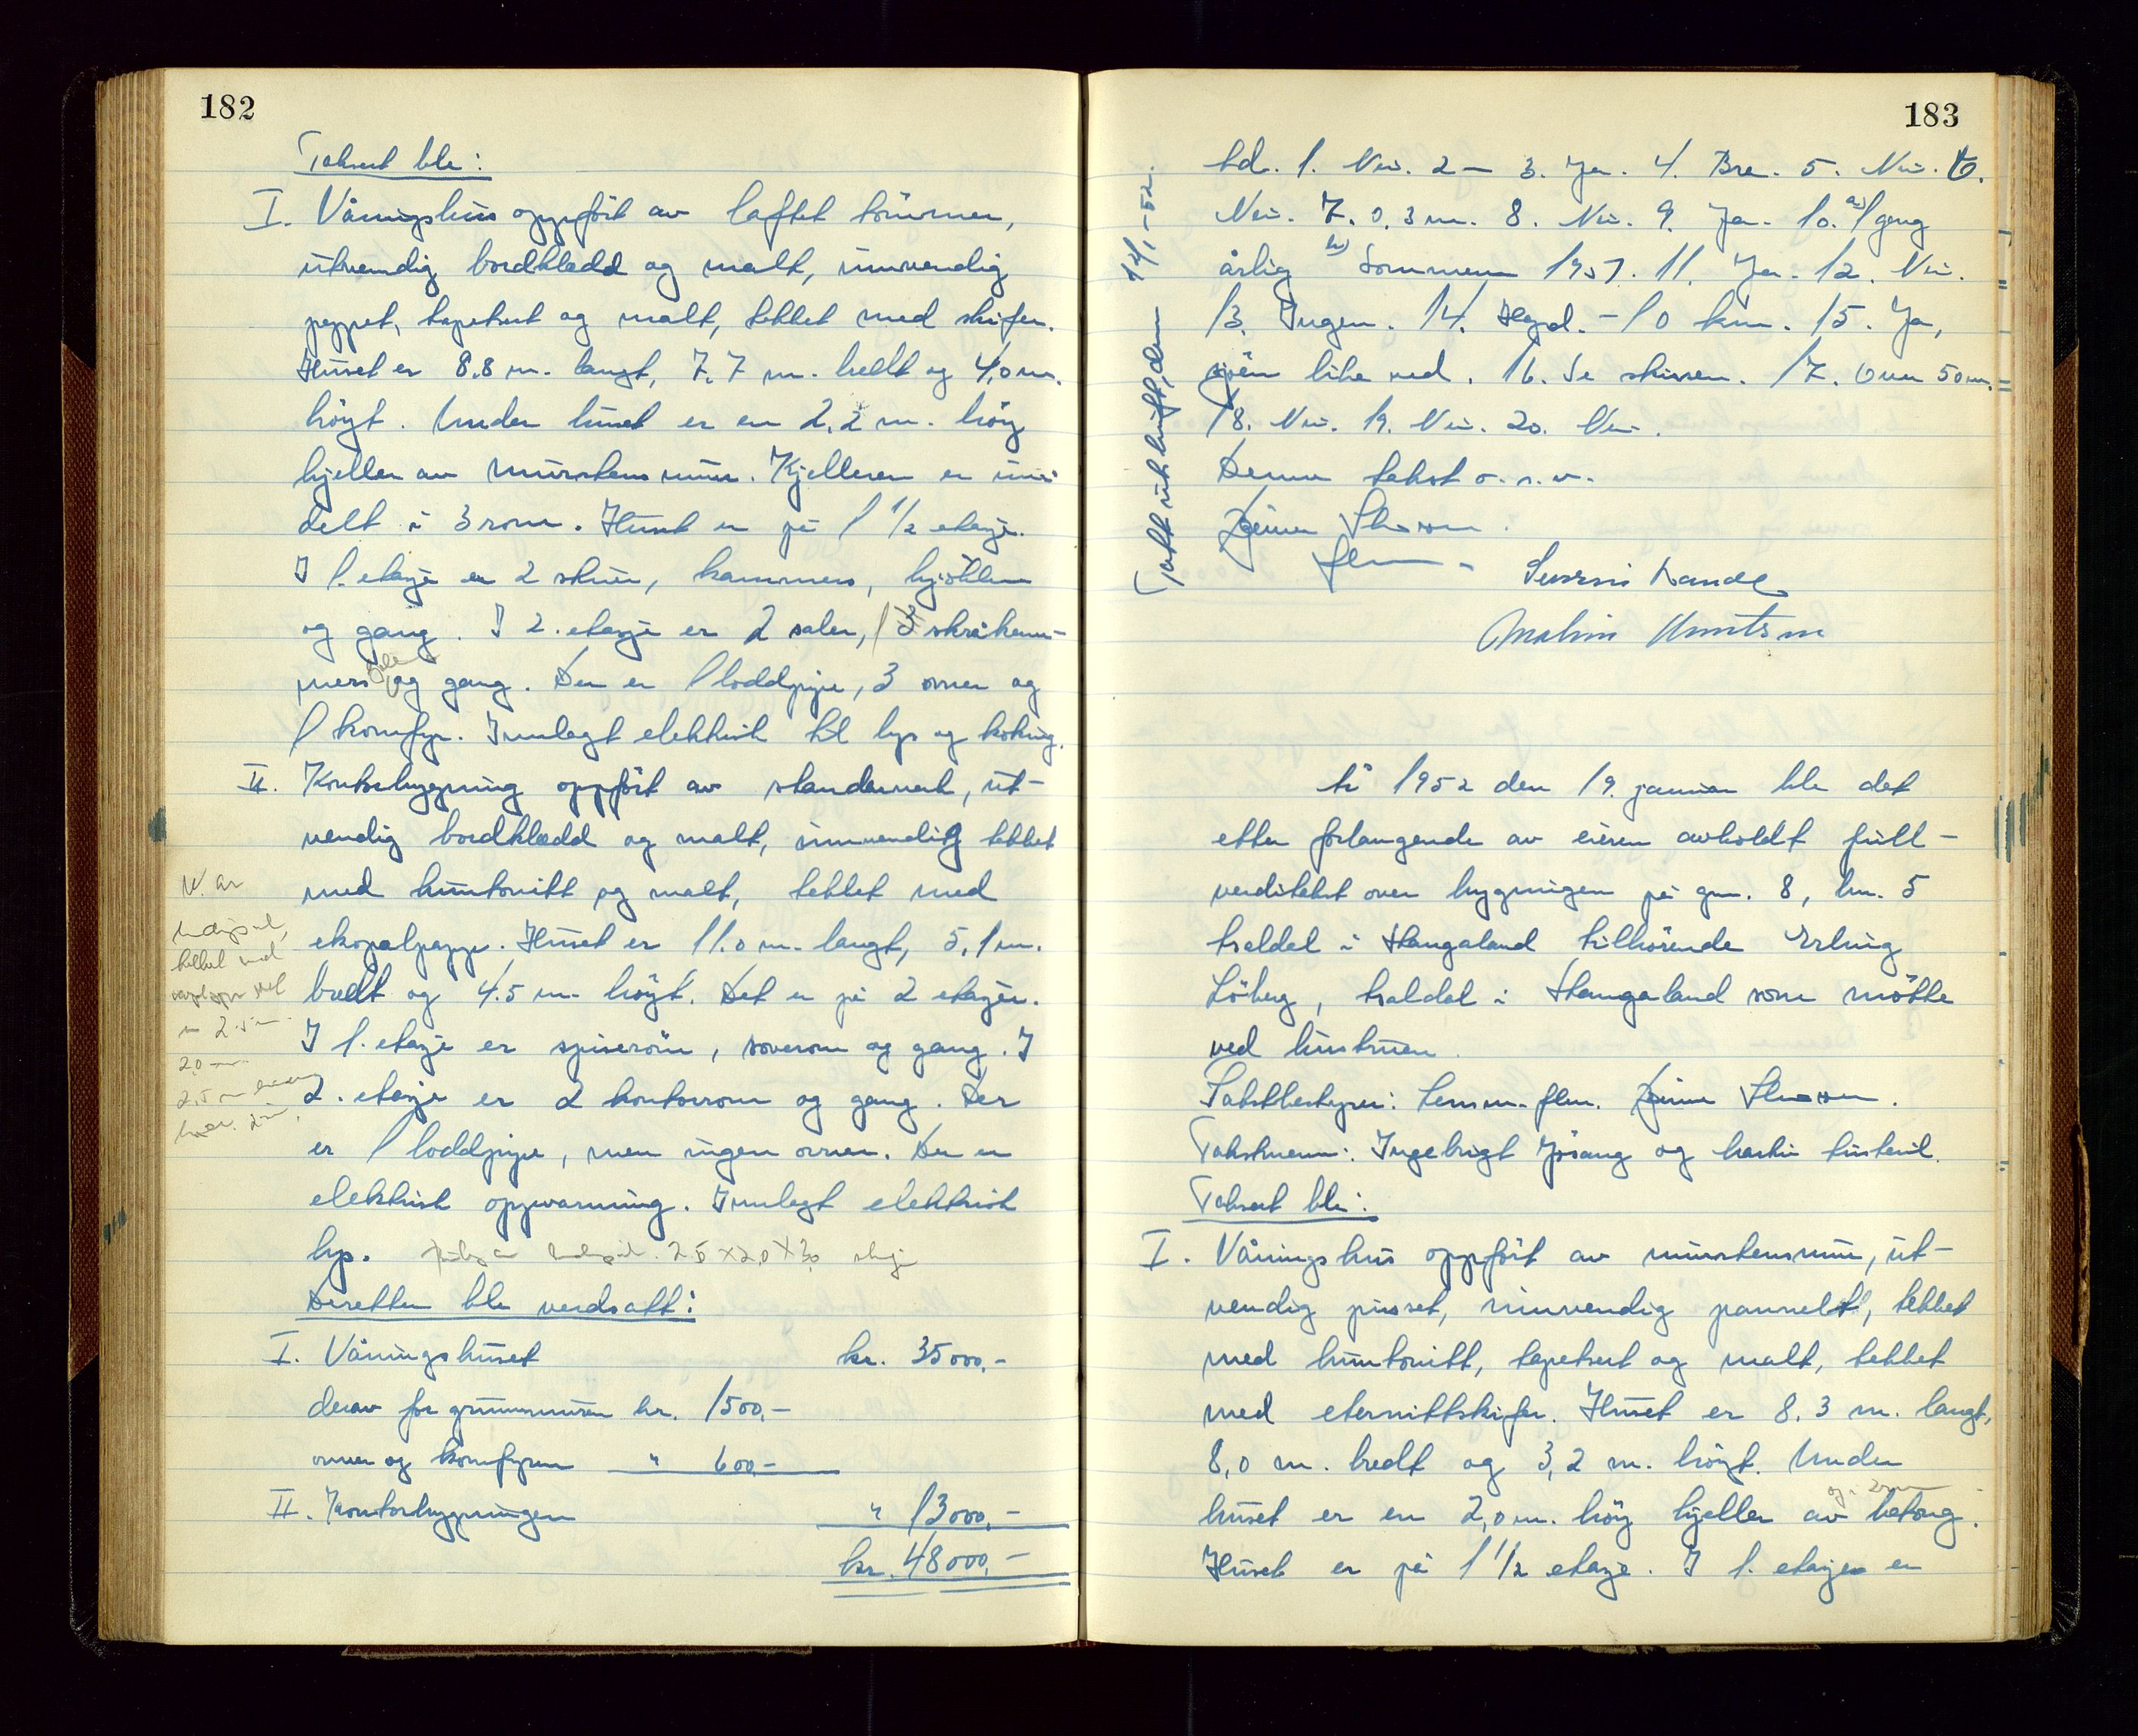 182
Taksert ble:
I. Våningshus oppført av laftet tømmer,
utvendig bordkledd og malt, innvendig
pappet, tapetsert og malt, tekket med skifer.
Huset er 8.8 m. langt, 7.7 m. bredt og 4,0 m.
høyt. Under huset er en 2.2 m. høy
kjeller av murstensmur. Kjelleren er inn-
delt i 3 rom. Huset er på 1 1/2 etasje.
I 1. etasje er 2 stuer, kammers, kjøkken
og gang. I 2. etasje er 2 saler, 3 skråkam-
mers og gang. Der er 1 loddpipe, 3 ovner og
1 komfyr. Innlagt elektrisk til lys og koking.
II. Kontorbygning oppført av standerverk, ut-
vendig bordkledd og malt, innvendig tekket
med huntonitt og malt, tekket med
ekopalpapp. Huset er 11.0 m. langt, 5,1 m.
bredt og 4.5 m. høyt. Det er på 2 etasjer.
I 1. etasje er spiserom, soverom og gang. I
2. etasje er 2 kontorrom og gang. Der
er 1 loddpipe, men ingen ovner. Der er
elektrisk oppvarming. Innlagt elektrisk
lys. 2.5 x 2.0 x
Deretter ble verdsatt:
I. Våningshuset kr. 35000.-
derav for grunnmuren kr. 1500.-
ovner og komfyren " 600.-
II. Kontorbygningen " 13000.-
kr. 48000.-
183
bd. 1. Nei. 2 - 3. Ja. 4. Bra. 5. Nei. 6.
Nei. 7. 0.3 m. 8. Nei. 9. Ja. 10. a) 1 gang
årlig b) Sommeren 1951. 11. Ja. 12. Nei.
13. Ingen. 14. Hgsd. - 10 km. 15. Ja,
sjøen like ved. 16. Se skissen. 17. Over 50 m.
18. Nei. 19. Nei. 20. Nei.
Denne takst o.s.v.
Tatt utskrift, den 14/1-52.
År 1952 den 19. januar ble det
etter forlangende av eieren avholdt full-
verditakst over bygningen på gnr. 8, bnr. 5
i Stangaland tilhørende Erling
Løberg, i Stangaland som møtte
ved hustruen.
Takstbestyrer: Lensm. flm.
Takstmenn: Ingebrigt og
Taksert ble:
I. Våningshus oppført av murstensmur, ut-
vendig pusset, innvendig pannelt, tekket
med huntonitt, tapetsert og malt, tekket
med eternittskifer. Huset er 8.3 m. langt,
8,0 m. bredt og 3,2 m. høyt. Under
huset er en 2,0 m. høy kjeller av betong.
Huset er på 1 1/2 etasje. I 1. etasje er